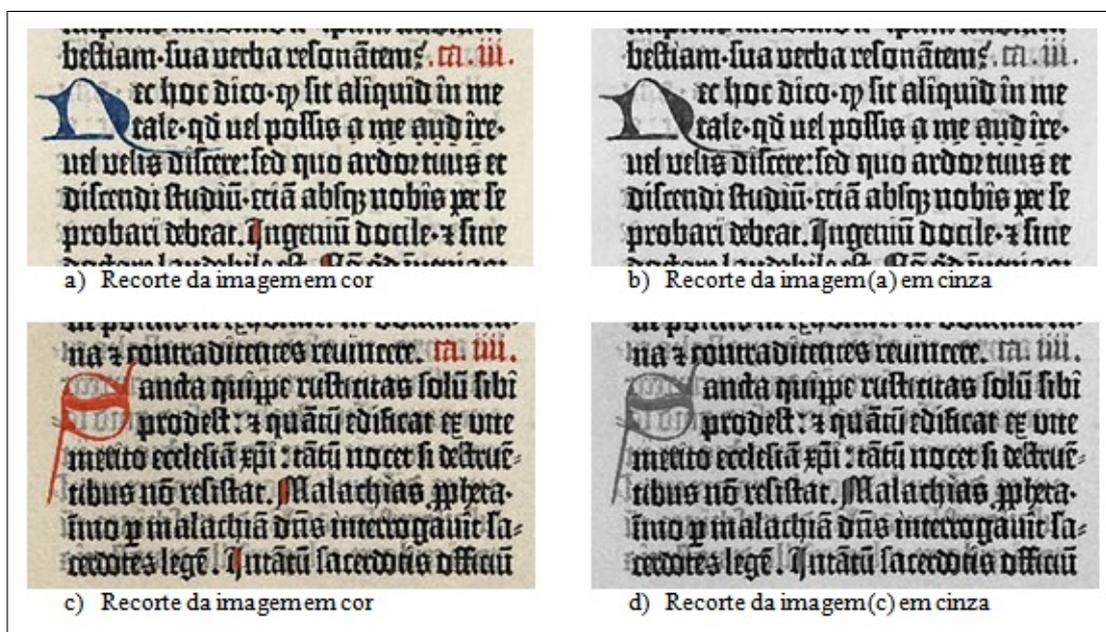 bestiam·sua verba resonãtem. .ca. iii.
Nec hoc dico· sit aliquid in me
tale·qd uel possis a me audire·
uel velis discere:sed quo ardor tuus et
discendi studiũ·eciã absqꝫ nobis per se
probari debeat. Ingeniũ docile·⁊ sine
a) Recorte da imagem em cor
bestiam·sua verba resonãtem. .ca. iii.
Nec hoc dico· sit aliquid in me
tale·qd uel possis a me audire·
uel velis discere:sed quo ardor tuus et
discendi studiũ·eciã absqꝫ nobis per se
probari debeat. Ingeniũ docile·⁊ sine
b) Recorte da imagem (a) em cinza
na ⁊ contradicentes reuincere. ca. iiii.
Sancta quippe rusticitas solũ sibi
prodest: ⁊ quãtũ edificat ex vite
merito ecclesiã xpi: tãtũ nocet si destruẽ=
tibus nõ resistat. Malachias ꝓpheta·
ĩmo ꝑ malachiã dñs interrogauit sa=
cerdotes legẽ. Intãtũ sacerdotis officiũ
c) Recorte da imagem em cor
na ⁊ contradicentes reuincere. ca. iiii.
Sancta quippe rusticitas solũ sibi
prodest: ⁊ quãtũ edificat ex vite
merito ecclesiã xpi: tãtũ nocet si destruẽ=
tibus nõ resistat. Malachias ꝓpheta·
ĩmo ꝑ malachiã dñs interrogauit sa=
cerdotes legẽ. Intãtũ sacerdotis officiũ
d) Recorte da imagem (c) em cinza